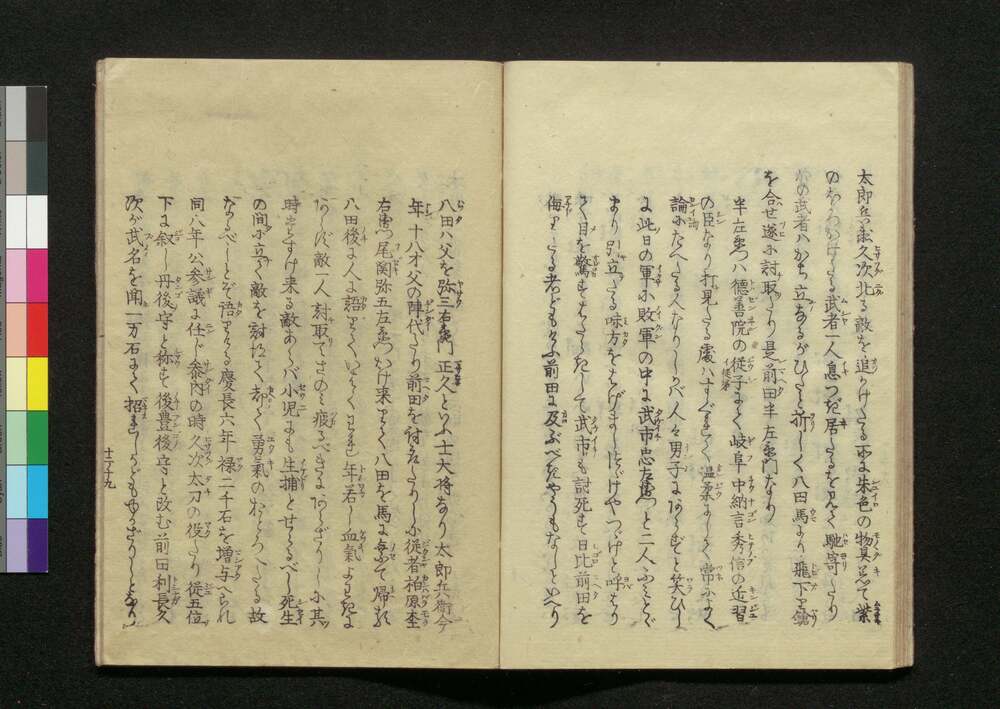 太郎兵衛久次北る敵を追かけたる所に朱色の物具着て葉
のむちかけたる武者一人息つぎ居たるを見て馳寄たり
かの武者ハかち立なるがひたと折しく八田馬より飛下り鎗
を合せ遂に討取たり是前田半左衛門なり
半左衛門ハ徳善院の従子にて岐阜中納言秀信の近習
の臣なり打見たる處ハすぐれて温柔にして常によく
論にたへたる人なりしかバ人々男子にあらずと笑ひし
に此日の軍に敗軍の中に武市忠左衛門と二人ふみとゞ
まり引立たる味方をはげましつゞけやつゞけと呼はり
て目を驚すはたらきして武市も討死す日比前田を
侮りたる者どももふ前田に及ぶべきやうもなしといへり
八田ハ父を弥三右衛門正久といふ士大将なり太郎兵衛今
年十八才父の陣代たり前田を討取たりしに従者柏原杢
右衛門尾関弥五左衛門かけ来りて八田を馬に乗せて帰れり
八田後に人に語りていはくわれ年若し血氣よわきに
あらず敵一人討取てさのミ疲るべきにあらざりしに其
時もしすけ来る敵あらバ小児にも生捕とせらるべし死生
の間に立て敵を討ほにて却て勇氣のおとろへたる故
なるべしとぞ語りける慶長六年禄二千石を増与へられ
同八年公参議に任じ参内の時久次太刀の役たり従五位
下に叙し丹後守と称す後豊後守と改む前田利長久
次が武名を聞一万石にて招きしかどもゆかざりしとなり
十ノ十九